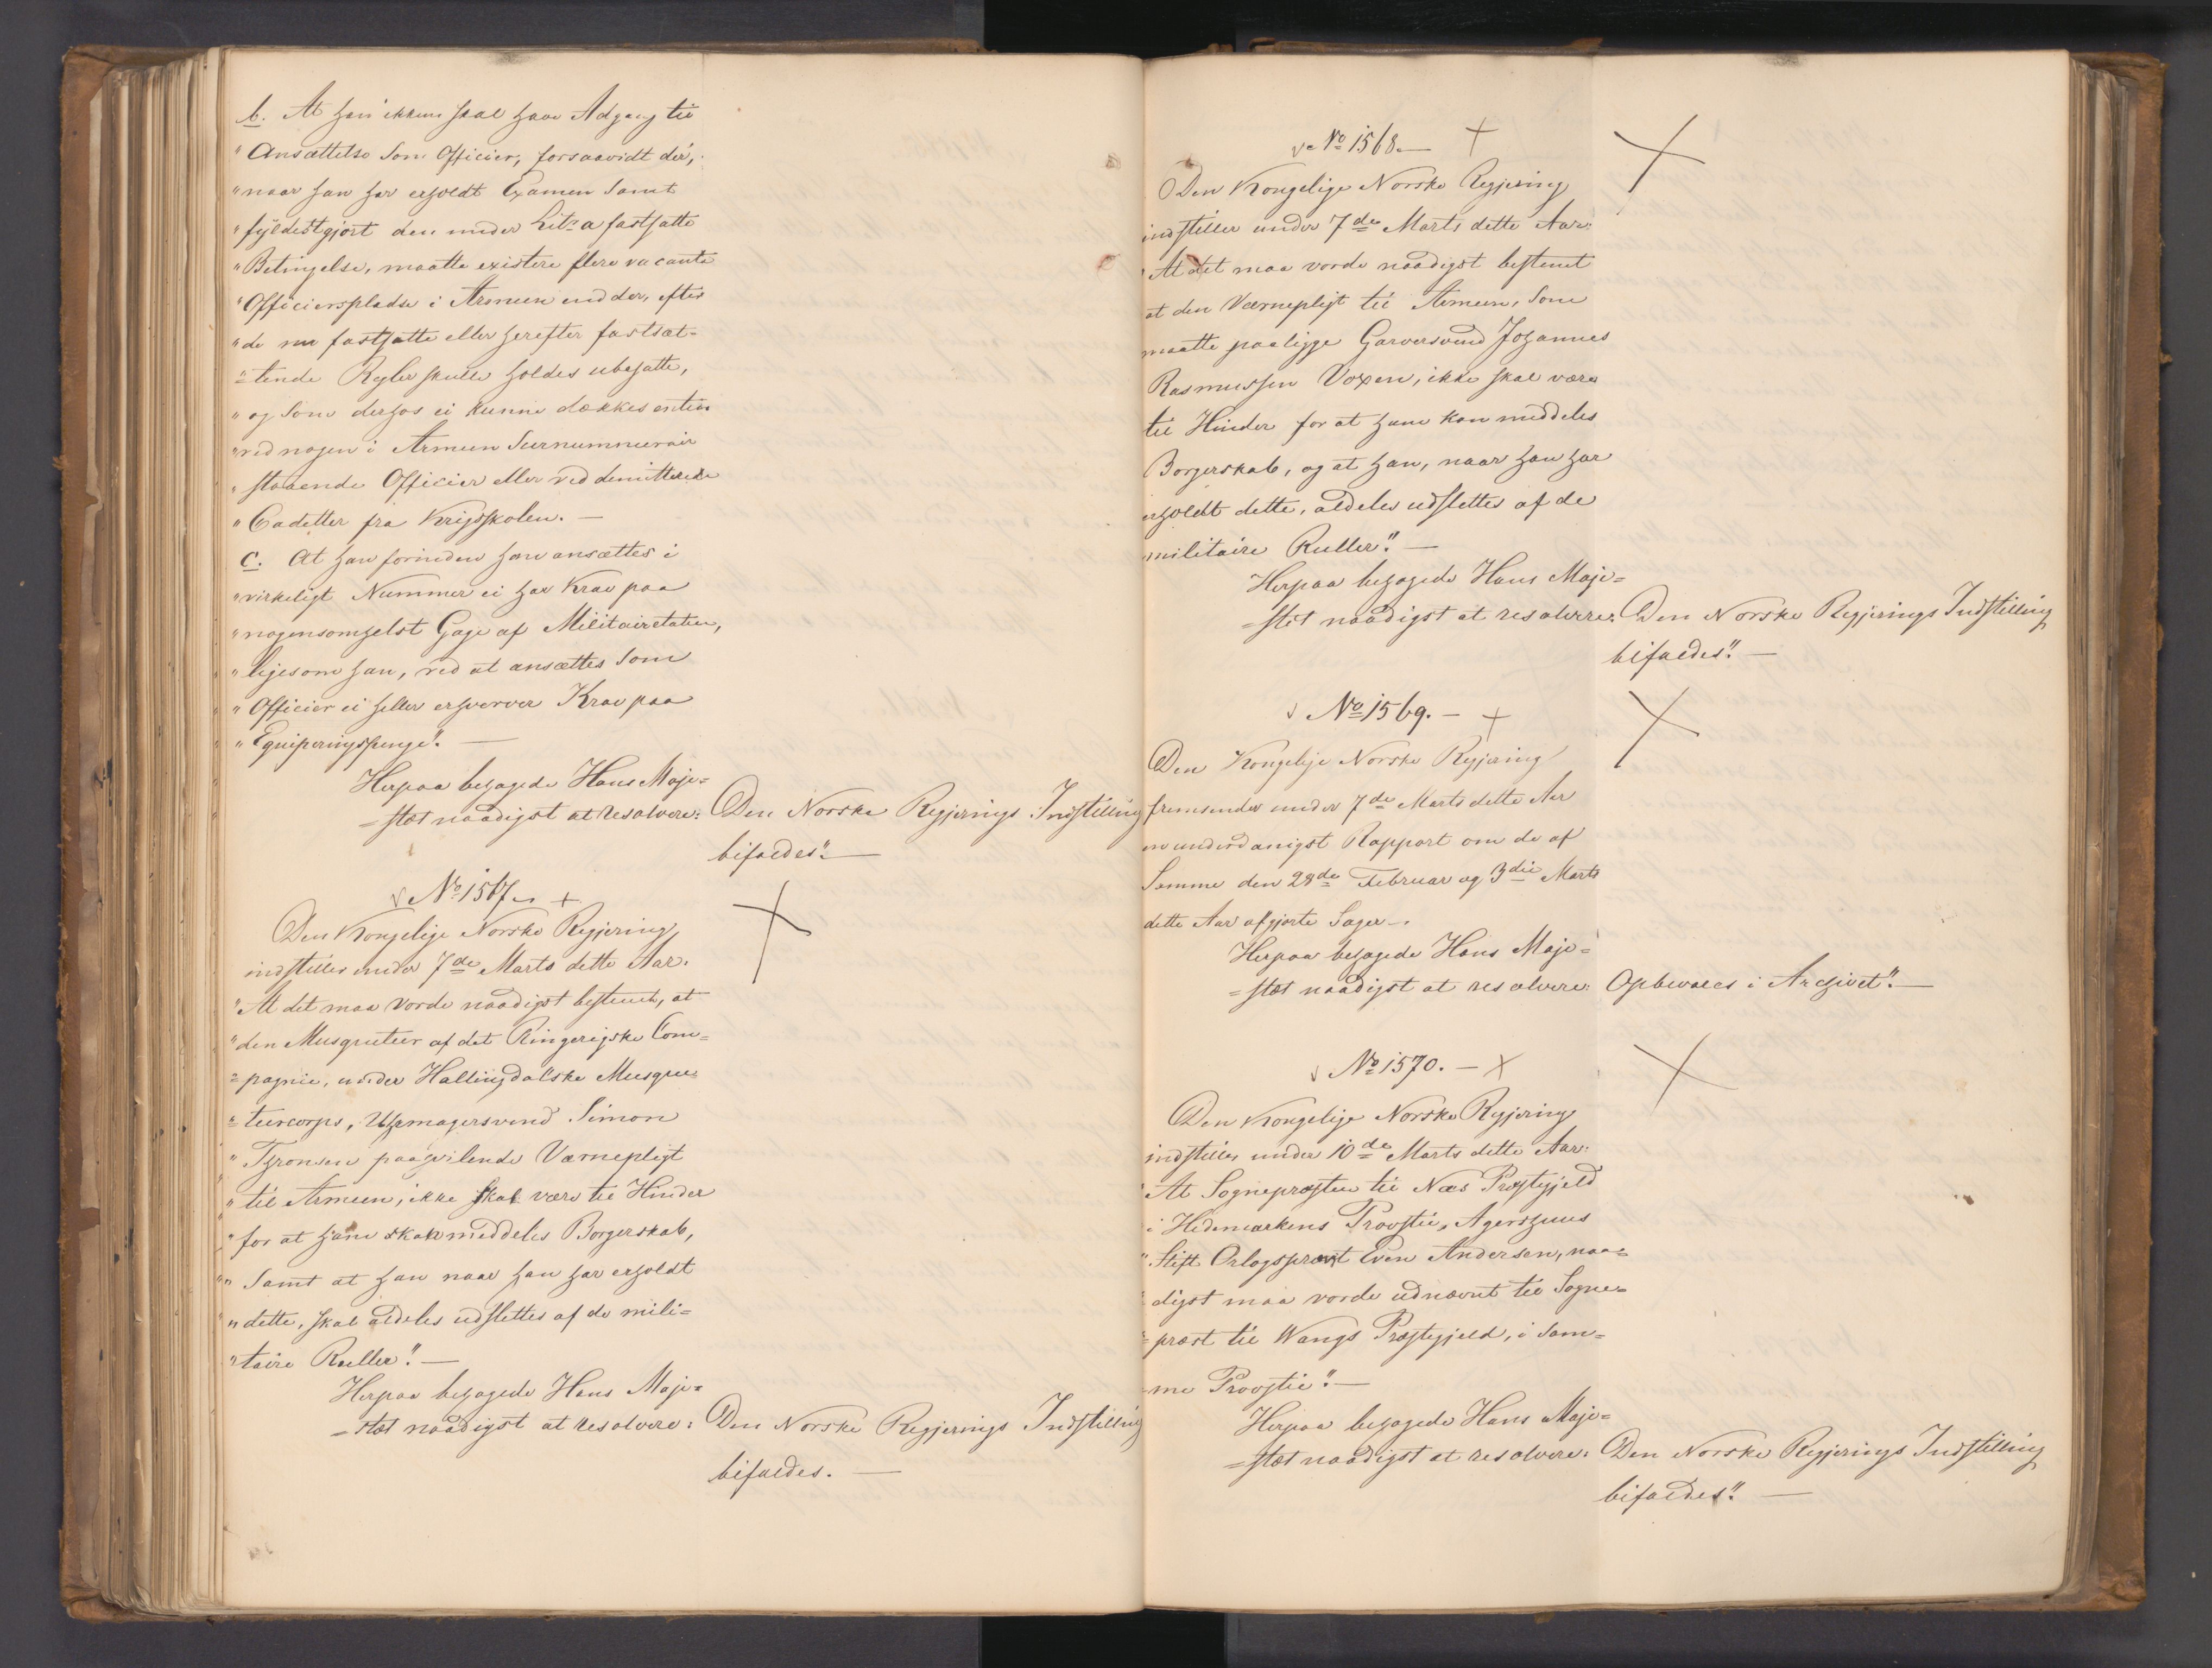 b. At han ikkun skal have Adgang til
"Ansættelse som Officier, forsaavidt der,
"naar han har erholdt Examen samt
"fyldestgjort den under Litr a fastsatte
"Betingelse, maatte existere flere vacante
"Officierspladse i Armeen end der, efter
"de nu fastsatte eller herefter fastsæt=
"=tende Regler skulle holdes ubesatte,
"og som derhos ei kunne dækkes enten
"ved nogen i Armeen Surnummerair
"staaende Officier eller ved demitterede
"Cadetter fra Krigsskolen. —
c. At han forinden han ansættes i
"virkeligt Nummer ei har Krav paa
"nogensomhelst Gage af Militairetaten,
"ligesom han, ved at ansættes som
"Officier ei heller erhverver Krav paa
"Equiperingspenge". —
Herpaa behagede Hans Maje=
=stæt naadigst at resolvere: Den Norske Regjerings Indstilling
bifaldes". —
No 1567. +
Den Kongelige Norske Regjering
indstiller under 7de Marts dette Aar.
"At det maa vorde naadigst bestemt, at
"den Musqueteer af det Ringerigske Com=
"=pagnie, under Hallingdalske Musque=
"=teercorps, Uhrmagersvend Simon
"Thronsen paahvilende Værnepligt
"til Armeen, ikke skal være til Hinder
"for at ham skal meddeles Borgerskab,
"samt at han naar han har erholdt
"dette, skal aldeles udslettes af de mili=
"taire Ruller". —
Herpaa behagede Hans Maje=
=stæt naadigst at resolvere: Den Norske Regjerings Indstilling
bifaldes. —
No 1568. — +
Den Kongelige Norske Regjering
indstiller under 7de Marts dette Aar:
"At det maa vorde naadigst bestemt
at den Værnepligt til Armeen, som
maatte paaligge Garversvend Johannes
Rasmussen Voxen, ikke skal være
til Hinder for at ham kan meddeles
Borgerskab, og at han, naar han har
erholdt dette, aldeles udslettes af de
militaire Ruller". —
Herpaa behagede Hans Maje=
=stæt naadigst at resolvere: Den Norske Regjerings Indstilling
bifaldes". —
No 1569. — +
Den Kongelige Norske Regjering
fremsender under 7de Marts dette Aar
en underdanigst Rapport om de af
Samme den 28de Februar og 3die Marts
dette Aar afgjorte Sager. —
Herpaa behagede Hans Maje=
=stæt naadigst at resolvere: Opbevares i Archivet". —
No 1570. — +
Den Kongelige Norske Regjering
indstiller under 10de Marts dette Aar:
"At Sognepræsten til Næs Præstegjeld
i Hedemarkens Provstie, Agershuus
"Stift Orlogspræst Even Andersen, naa=
digst maa vorde udnævnt til Sogne=
=præst til Wangs Præstegjeld, i sam=
me Provstie". —
Herpaa behagede Hans Maje=
=stæt naadigst at resolvere: Den Norske Regjerings Indstilling
bifaldes". —